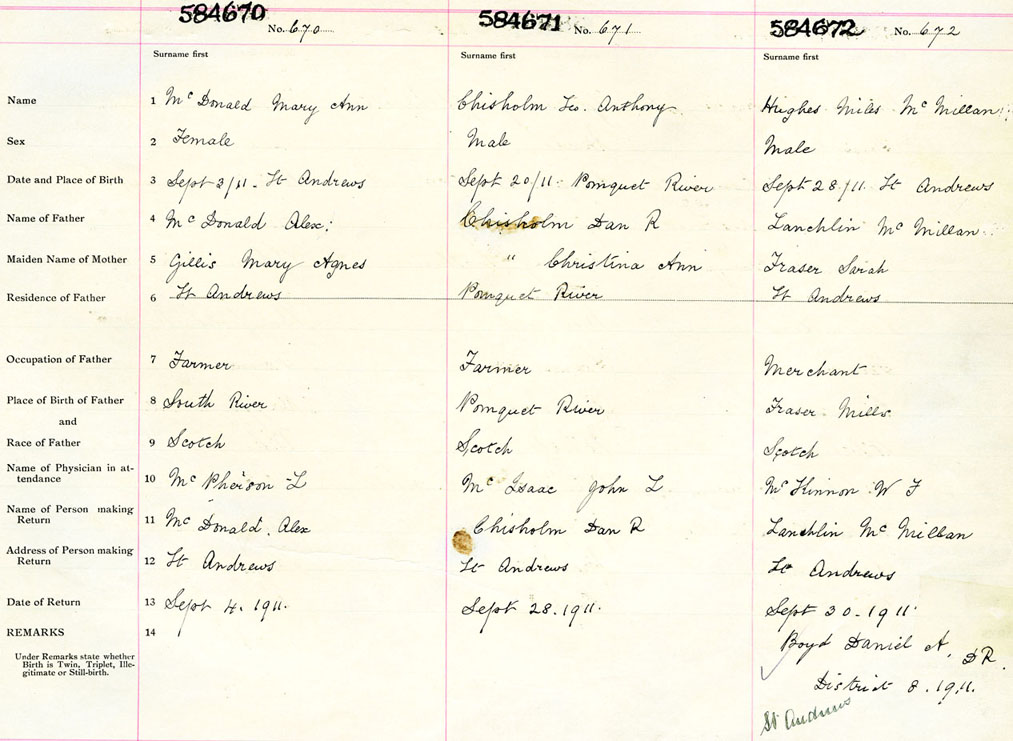 584670 No. 670 584671 No. 671 584672 No. 672
Surname first Surname first Surname first
Name 1 Mc Donald Mary Ann Chisholm Geo. Anthony Hughes Miles Mc Millan
Sex 2 Female Male Male
Date and Place of Birth 3 Sept 3/11. St Andrews Sept 20/11 Pomquet River Sept 28/11 St Andrews
Name of Father 4 Mc Donald Alex: Chisholm Dan R Lanchlin Mc Millan
Maiden Name of Mother 5 Gillis Mary Agnes " Christina Ann Fraser Sarah
Residence of Father 6 St Andrews Pomquet River St Andrews
Occupation of Father 7 Farmer Farmer Merchant
Place of Birth of Father 8 South River Pomquet River Fraser Mills
and
Race of Father 9 Scotch Scotch Scotch
Name of Physician in at-
tendance 10 Mc Pherson L Mc Isaac John L Mc Kinnon W F
Name of Person making
Return 11 Mc Donald. Alex Chisholm Dan R Lanchlin Mc Millan
Address of Person making
Return 12 St Andrews St Andrews St Andrews
Date of Return 13 Sept 4. 1911. Sept 28. 1911. Sept 30-1911.
REMARKS 14
Under Remarks state whether
Birth is Twin, Triplet, Ille-
gitimate or Still-birth.
Boyd Daniel A, DR.
District 8. 1911.
St Andrews